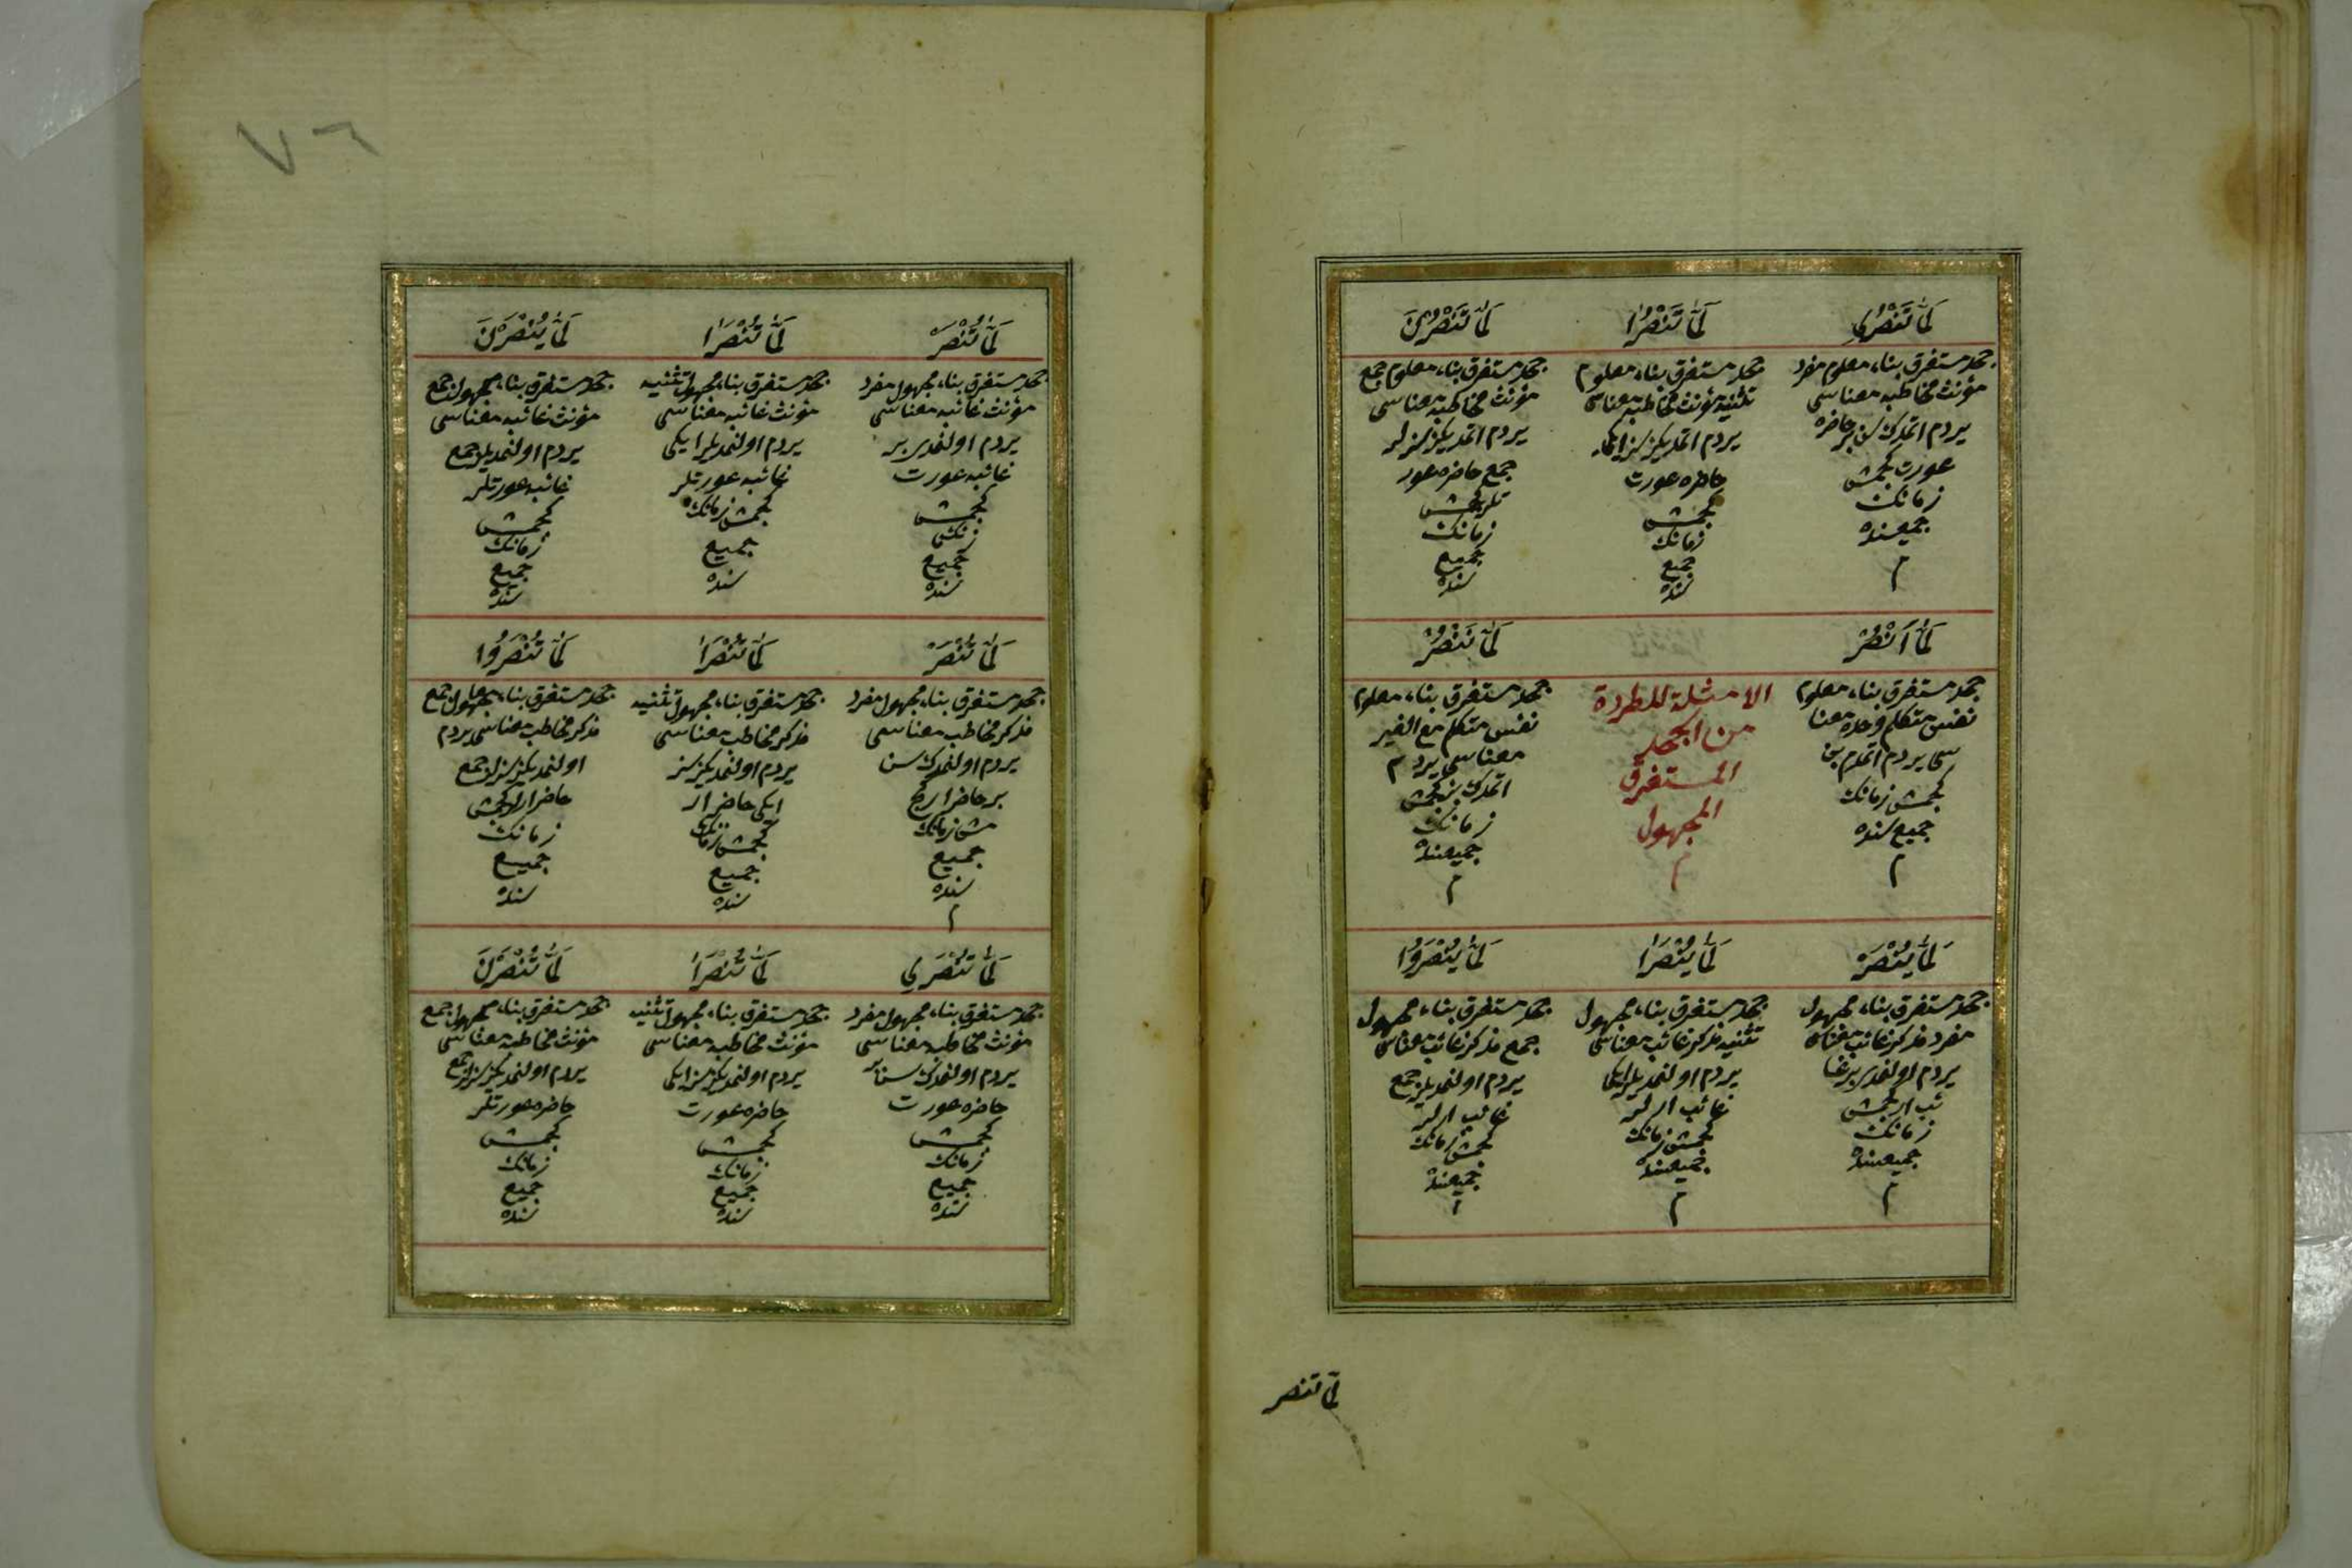 لَمَّا تَنْصُرِي
جحد مستغرق بناء معلوم مفرد
مؤنث مخاطبه معناسى
يردم اتمدك سن بر حاضره
عورت كچمش
زمانك
جميعنده
م
لَمَّا تَنْصُرَا
جحد مستغرق بناء معلوم
تثنيه مؤنث مخاطبه معناسى
يردم اتمديكز سز ايكى
حاضره عورت
كچمش
زمانك
جميع
سنده
لَمَّا تَنْصُرْنَ
جحد مستغرق بناء معلوم جمع
مؤنث مخاطبه معناسى
يردم اتمديكز سزلر
جمع حاضره عور
تلر كچمش
زمانك
جميع
سنده
لَمَّا اَنْصُرْ
جحد مستغرق بناء معلوم
نفس متكلم وحده معنا
سى يردم اتمدم بن
كچمش زمانك
جميع سنده
م
الامثلة المطردة
من الجحد
المستغرق
المجهول
م
لَمَّا نَنْصُرْ
جحد مستغرق بناء معلوم
نفس متكلم مع الغير
معناسى يردم
اتمدك بز كچمش
زمانك
جميعنده
م
لَمَّا يُنْصَرْ
جحد مستغرق بناء مجهول
مفرد مذكر غائب معناسى
يردم اولنمدى بر غا
ئب ار كچمش
زمانك
جميعنده
م
لَمَّا يُنْصَرَا
جحد مستغرق بناء مجهول
تثنيه مذكر غائب معناسى
يردم اولنمديلر ايكى
غائب ارلر
كچمش زمانك
جميعنده
م
لَمَّا يُنْصَرُوا
جحد مستغرق بناء مجهول
جمع مذكر غائب معناسى
يردم اولنمديلر جمع
غائب ارلر
كچمش زمانك
جميعنده
م
لما تنصر
٧٦
لَمَّا تُنْصَرْ
جحد مستغرق بناء مجهول مفرد
مؤنث غائبه معناسى
يردم اولنمدى بر
غائبه عورت
كچمش
زمنك
جميع
سنده
لَمَّا تُنْصَرَا
جحد مستغرق بناء مجهول تثنيه
مؤنث غائبه معناسى
يردم اولنمديلر ايكى
غائبه عورتلر
كچمش زمانك
جميع
سنده
لَمَّا يُنْصَرْنَ
جحد مستغرق بناء مجهول جمع
مؤنث غائبه معناسى
يردم اولنمديلر جمع
غائبه عورتلر
كچمش
زمانك
جميع
سنده
لَمَّا تُنْصَرْ
جحد مستغرق بناء مجهول مفرد
مذكر مخاطب معناسى
يردم اولنمدك سن
بر حاضر ار كچ
مش زمانك
جميع
سنده
م
لَمَّا تُنْصَرَا
جحد مستغرق بناء مجهول تثنيه
مذكر مخاطب معناسى
يردم اولنمديكز سز
ايكى حاضر ار
كچمش زمانك
جميع
سنده
لَمَّا تُنْصَرُوا
جحد مستغرق بناء مجهول جمع
مذكر مخاطب معناسى يردم
اولنمديكز سزلر جمع
حاضر ارلر كچمش
زمانك
جميع
سنده
لَمَّا تُنْصَرِي
جحد مستغرق بناء مجهول مفرد
مؤنث مخاطبه معناسى
يردم اولنمدك سن بر
حاضره عورت
كچمش
زمانك
جميع
سنده
لَمَّا تُنْصَرَا
جحد مستغرق بناء مجهول تثنيه
مؤنث مخاطبه معناسى
يردم اولنمديكز سز ايكى
حاضره عورت
كچمش
زمانك
جميع
سنده
لَمَّا تُنْصَرْنَ
جحد مستغرق بناء مجهول جمع
مؤنث مخاطبه معناسى
يردم اولنمديكز سزلر جمع
حاضره عورتلر
كچمش
زمانك
جميع
سنده